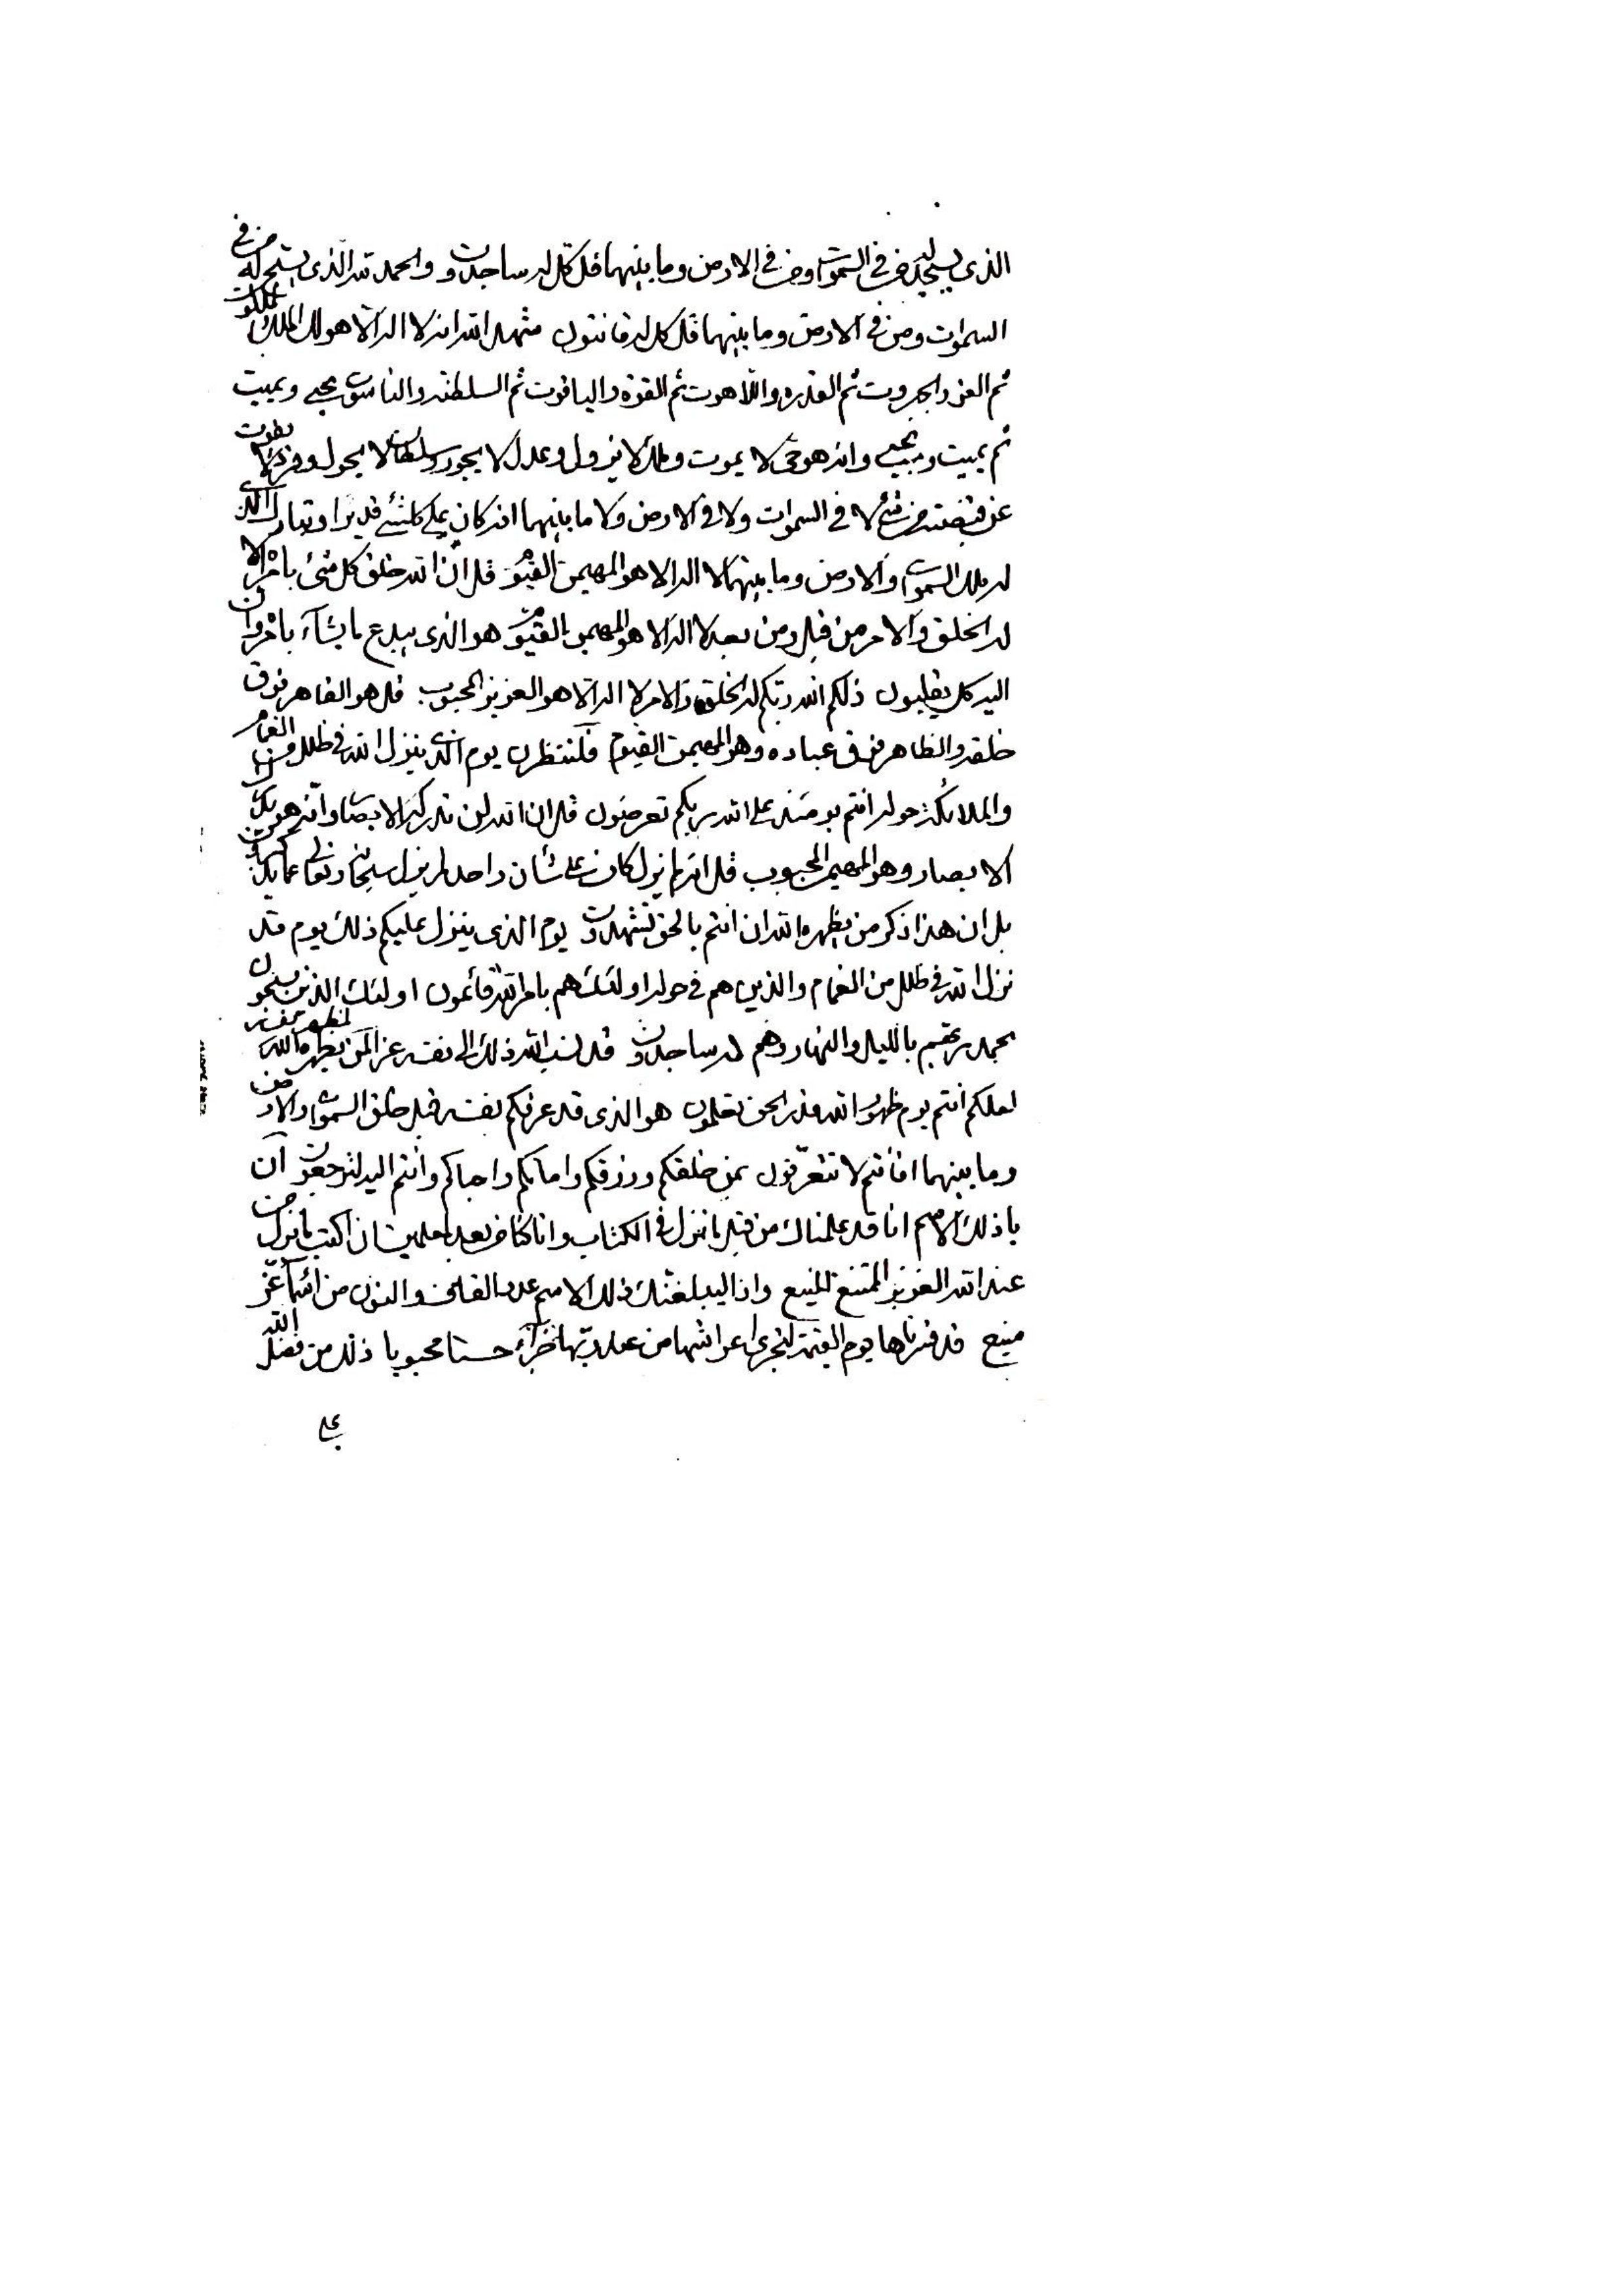 الذی یسجد له من فی السموات و من فی الارض و ما بینهما قل کل له ساجدون و الحمد لله الذی یسبح له من فی
السموات و من فی الارض و ما بینهما قل کل له قانتون شهد الله انه لا اله الا هو له الملک و الملکوت
ثم العز و الجبروت ثم القدرة و اللاهوت ثم القوة و الیاقوت ثم السلطنة و الناسوت یحیی و یمیت
ثم یمیت و یحیی و انه هو حی لا یموت و ملک لا یزول و عدل لا یجور و سلطان لا یحول و فرد لا یفوت
عن قبضته من شیء لا فی السموات و لا فی الارض و لا ما بینهما انه کان علی کلشیء قدیرا و تبارک الذی
له ملک السموات و الارض و ما بینهما لا اله الا هو المهیمن القیوم قل ان الله خلق کل شیء بامره الا
له الخلق و الامر من قبل و من بعد لا اله الا هو المهیمن القیوم هو الذی یبدع ما یشاء بامره و ان
الیه کل یقلبون ذلکم الله ربکم له الخلق و الامر لا اله الا هو العزیز المحبوب قل هو القاهر فوق
خلقه و الظاهر فوق عباده و هو المهیمن القیوم فلتنظرن یوم الذی ینزل الله فی ظلل من الغمام
و الملائکة حوله انتم یومئذ علی الله ربکم تعرضون قل ان الله لن تدرکه الابصار و انه هو یدرک
الابصار و هو المهیمن المحبوب قل انه لم یزل کان علی شأن واحد لم یزل سبحانه و تعالی عما یذکرون
بل ان هذا ذکر من یظهره الله ان انتم بالحق تشهدون یوم الذی ینزل علیکم ذلک یوم قد
نزل الله فی ظلل من الغمام و الذین هم فی حوله اولئک هم بامر الله قائمون اولئک الذین یسبحون
بحمد ربهم باللیل و النهار و هم له ساجدون قد نسب الله ذلک الی نفسه عزا لمن یظهره الله لمظهر نفسه
لعلکم انتم یوم ظهور الله قدر الحق تعلمون هو الذی قد عرفکم نفسه قبل خلق السموات و الارض
و ما بینهما افأنتم لا تتعرفون بمن خلقکم و رزقکم و اماتکم و احیاکم و أنتم الیه لترجعون آن
یا ذلک الاسم انا قد علمناک من قبل ما نزل فی الکتاب و انا کنا من بعد لعلمین ان اکتب ما نزل من
عند الله العزیز الممتنع المنیع و اذا الیه بلغتک ذلک الاسم عدد القاف و النون من اسماء عز
منیع قد قدرناها یوم القیمة لتجزی اعراشها من عند ربها جزاء حسنا محبوبا ذلک من فضل الله
علی